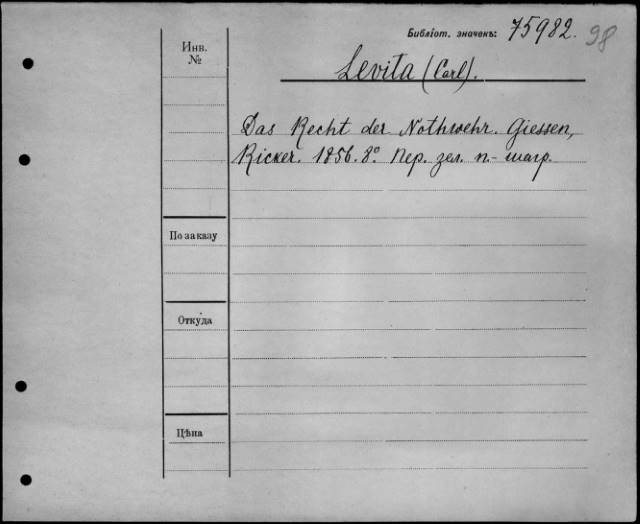 Библіот. значекъ: 75982. 98
Инв.
№
Levita (Carl).
Das Recht der Nothwehr. Giessen,
Ricker. 1856. 8° Пер. зел. п.- шагр.
По заказу
Откуда
Цѣна